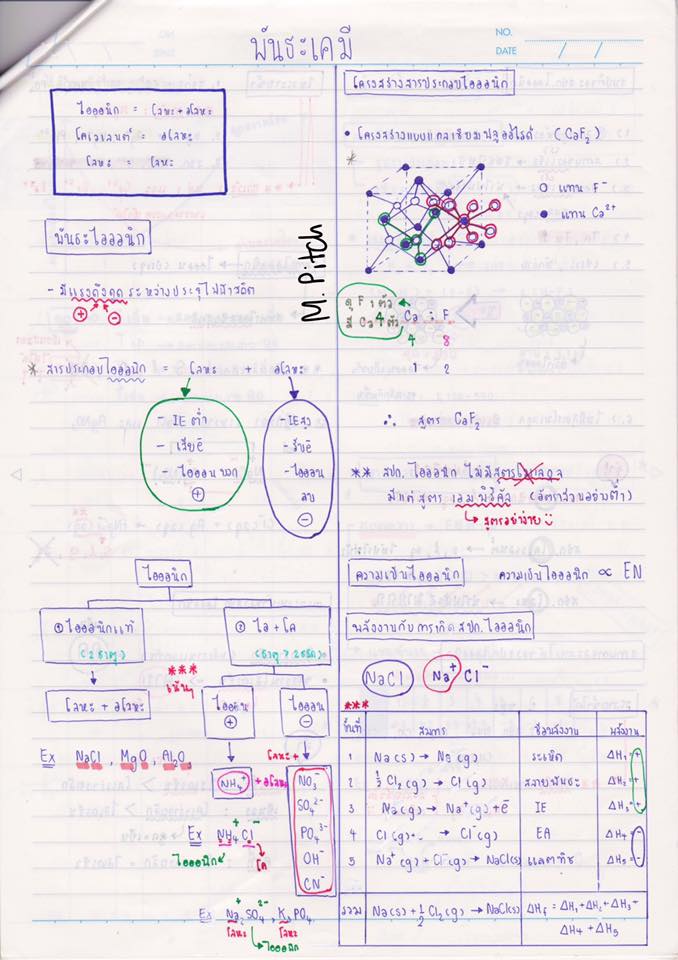 พันธะเคมี
NO.
DATE / /
ไอออนิก = โลหะ + อโลหะ
โคเวเลนต์ = อโลหะ
โลหะ = โลหะ
พันธะไอออนิก
- มีแรงดึงดูดระหว่างประจุไฟฟ้าสถิต
+ -
* สารประกอบไอออนิก = โลหะ + อโลหะ
- IE ต่ำ
- เสียē
- ไอออนบวก
+
- IEสูง
- รับē
- ไอออน
ลบ
-
ไอออนิก
① ไอออนิกแท้
(2ธาตุ)
② ไอ + โค
(ธาตุ > 2ชนิด)
โลหะ + อโลหะ
***
เน้นๆ
ไอออน
+
ไอออน
-
Ex NaCl , MgO , Al₂O₃
NH₄⁺ + อโลหะ
Ex NH₄⁺Cl⁻
ไอออนิก
โค
โลหะ +
NO₃⁻
SO₄²⁻
PO₄³⁻
OH⁻
CN⁻
Ex Na₂⁺SO₄²⁻ , K₃PO₄
โลหะ โลหะ
ไอออนิก
M. Pitch
โครงสร้างสารประกอบไอออนิก
• โครงสร้างแบบแคลเซียมฟลูออไรด์ (CaF₂)
*
○ แทน F⁻
● แทน Ca²⁺
ดู F 1 ตัว
มี Ca 4 ตัว
4 Ca : F
4 8
1 2
∴ สูตร CaF₂
** สปก. ไอออนิก ไม่มีสูตรโมเลกุล
มีแต่สูตร เอมพิริคัล (อัตราส่วนอย่างต่ำ)
สูตรอย่างง่าย
ความเป็นไอออนิก ความเป็นไอออนิก ∝ EN
พลังงานกับการเกิด สปก. ไอออนิก
NaCl Na⁺ Cl⁻
***
ขั้นที่ สมการ ชื่อพลังงาน พลังงาน
1 Na(s) → Na(g) ระเหิด ΔH₁ = +
2 ½ Cl₂(g) → Cl(g) สลายพันธะ ΔH₂ = +
3 Na(g) → Na⁺(g) + ē IE ΔH₃ = +
4 Cl(g) → Cl⁻(g) EA ΔH₄ = -
5 Na⁺(g) + Cl⁻(g) → NaCl(s) แลตทิซ ΔH₅ = -
รวม Na(s) + ½Cl₂(g) → NaCl(s) ΔHf = ΔH₁ + ΔH₂ + ΔH₃ +
ΔH₄ + ΔH₅